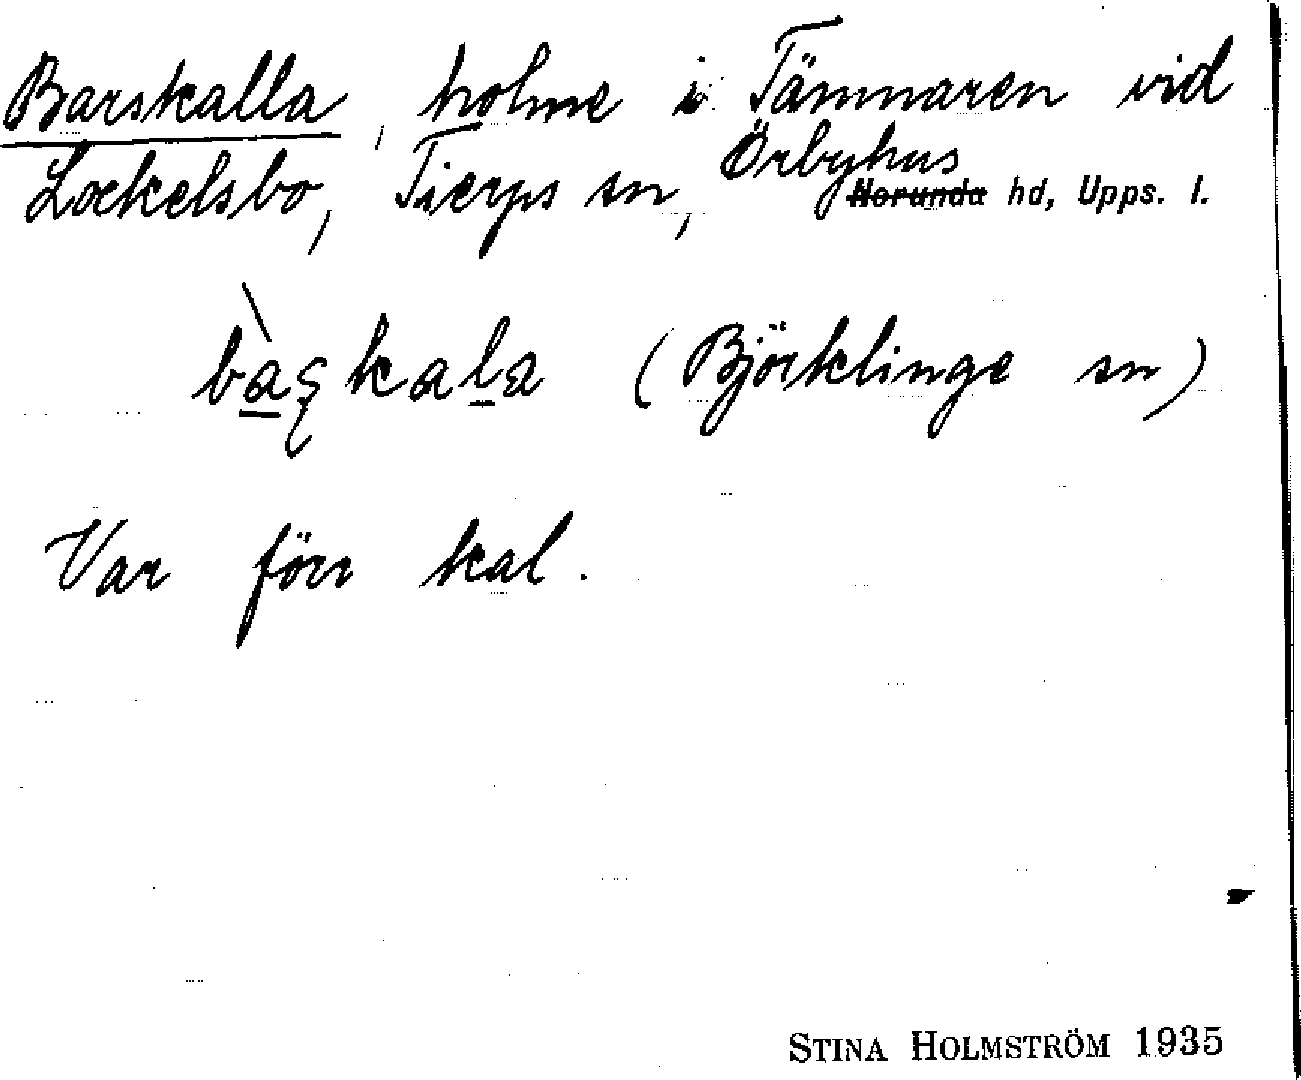 Barskalla, holme i Tämnaren vid
Lockelsbo, Tierps sn, Örbyhus ~~Norunda~~ hd, Upps. l.
bàʂkala (Björklinge sn)
Var förr kal.
STINA HOLMSTRÖM 1935